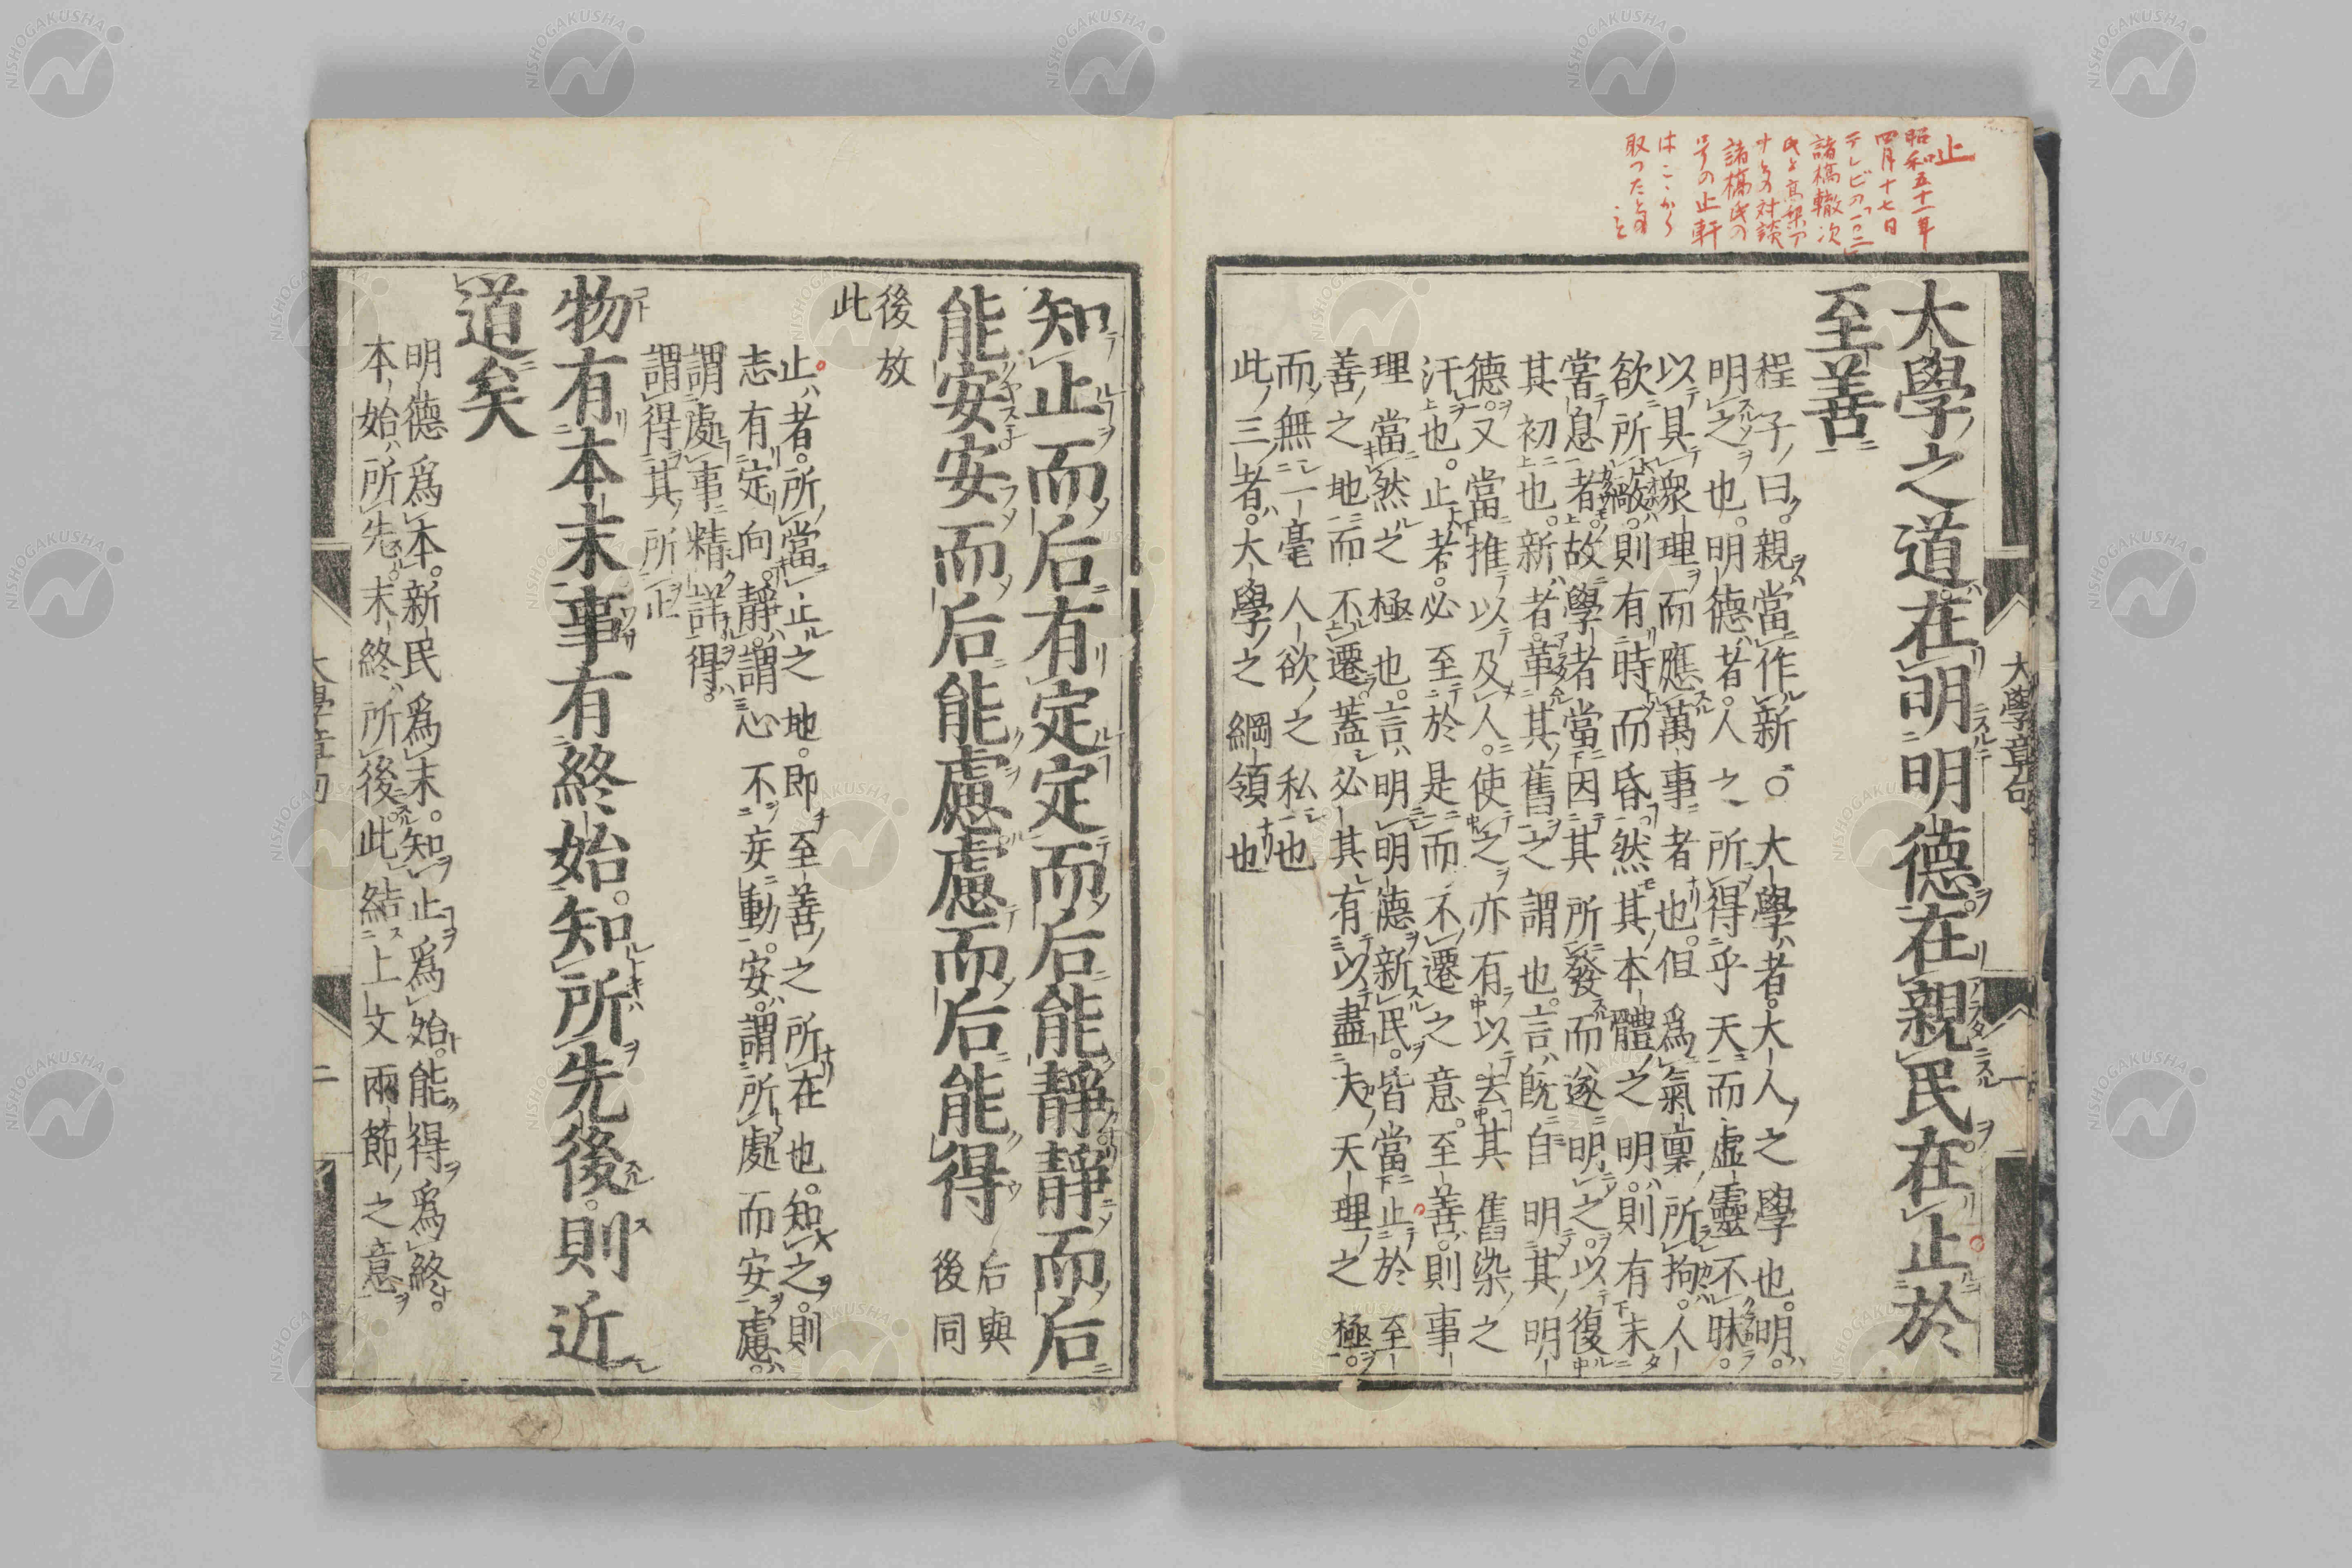 止
昭和五十一年
四月十七日
テレビの「一〇二」
諸橋轍次
氏と高梨ア
ナとの対談
諸橋氏の
号の止軒
はここから
取つたとの
こと
大學章句
大學之道。在明明德。在親民。在止於
至善
程子曰。親當作新。○大學者。大人之學也。明。
明之也。明德者。人之所得乎天而虛靈不昧。
以具衆理而應萬事者也。但爲氣稟所拘。人
欲所蔽。則有時而昏。然其本體之明。則有未
嘗息者。故學者當因其所發而遂明之。以復
其初也。新者。革其舊之謂也。言既自明其明
德。又當推以及人。使之亦有以去其舊染之
汙也。止者。必至於是而不遷之意。至善。則事
理當然之極也。言明明德新民。皆當止於至
善之地而不遷。蓋必其有以盡夫天理之極。
而無一毫人欲之私也
此三者。大學之綱領也
知止而后有定定而后能靜靜而后
能安安而后能慮慮而后能得
后與
後同
後放
此
止者。所當止之地。即至善之所在也。知之。則
志有定向。靜。謂心不妄動。安。謂所處而安。慮。
謂處事精詳。得。
謂得其所止
物有本末事有終始。知所先後。則近
道矣
明德爲本。新民爲末。知止爲始。能得爲終。
本始所先。末終所後。此結上文兩節之意
大學章句
二
NISHOGAKUSHA